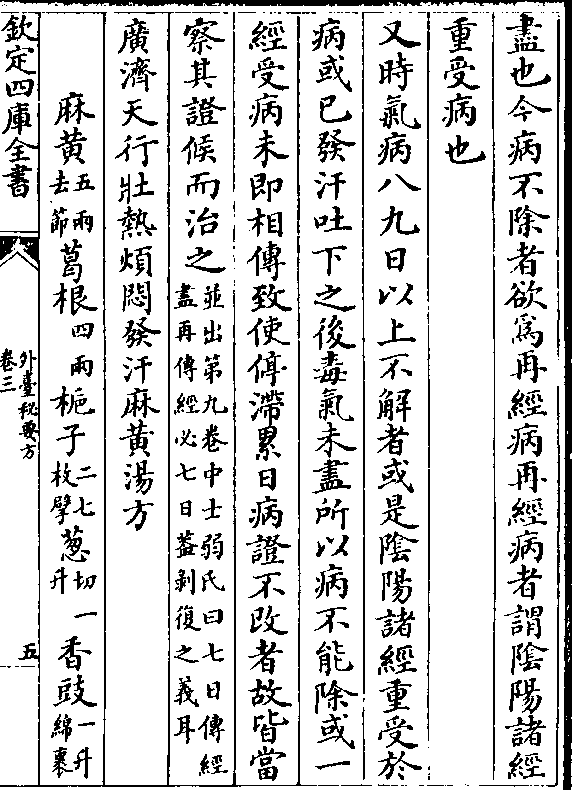 盡也今病不除者欲爲再經病再經病者謂陰陽諸經
重受病也
又時氣病八九日以上不解者或是陰陽諸經重受於
病或已發汗吐下之後毒氣未盡所以病不能除或一
經受病未即相傳致使停滯累日病證不改者故皆當
察其證候而治之並出第九卷中士弱氏曰七日傳經
盡再傳經必七日葢剥復之義耳
廣濟天行壯熱煩悶發汗麻黄湯方
麻黄五兩去節葛根四兩梔子二七枚擘葱切一升香豉一升綿裹
欽定四庫全書
外臺秘要方
卷三
五